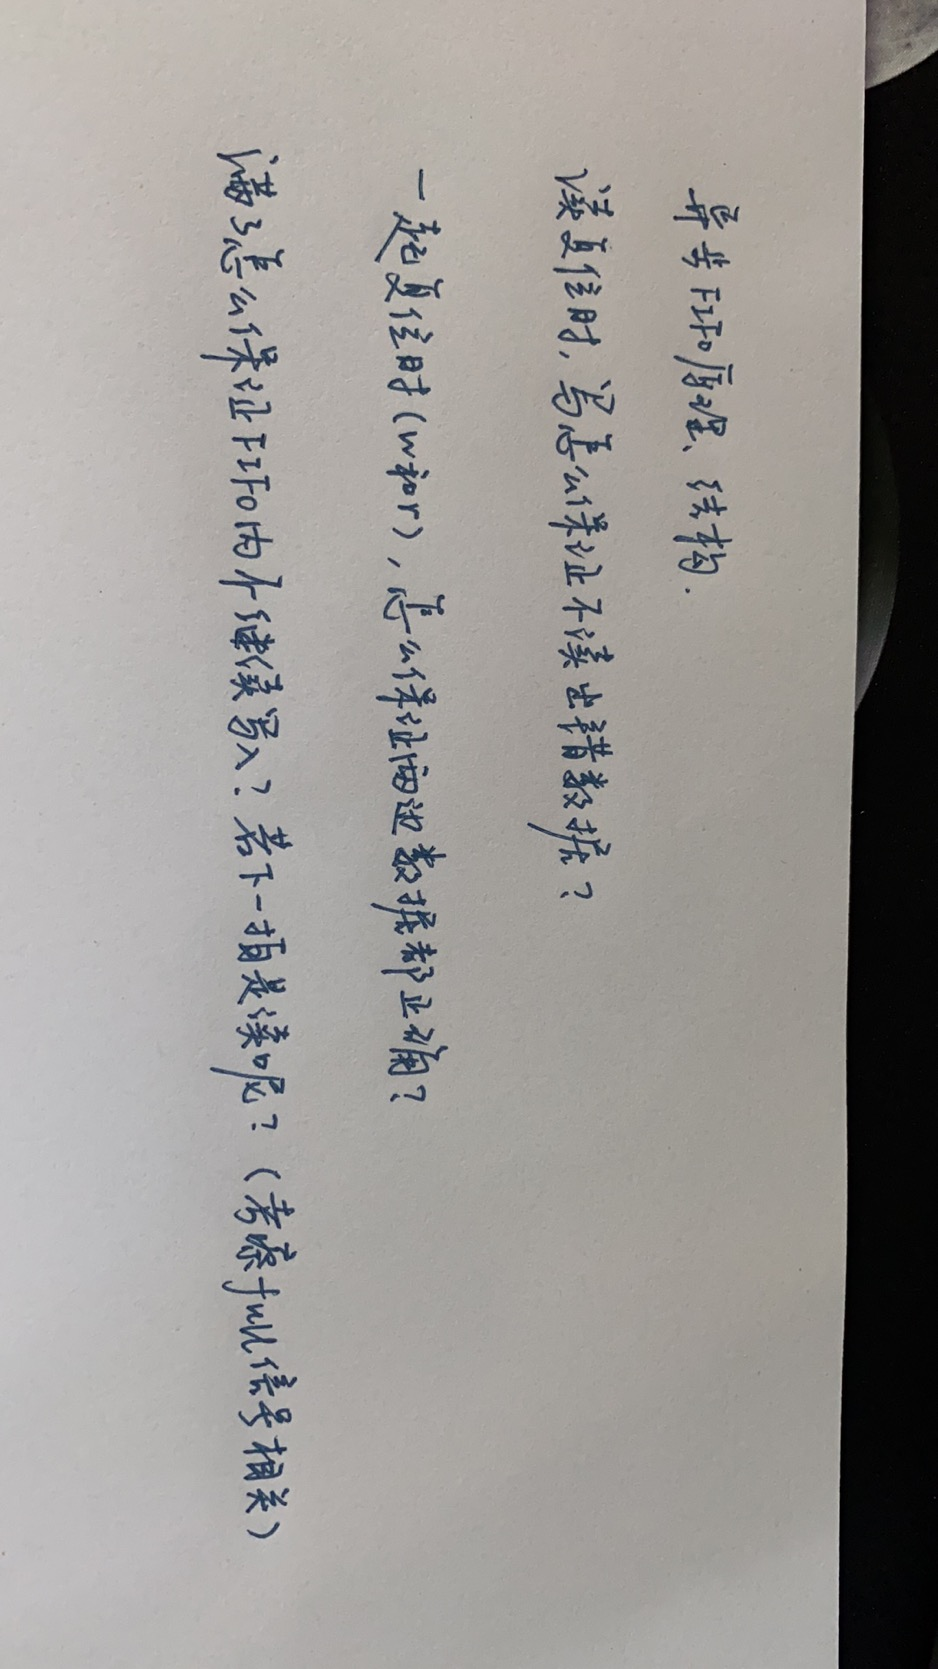 异步FIFO原理、结构.
读复位时，写怎么保证不读出错数据？
一起复位时(w和r)，怎么保证两边数据都正确？
满了怎么保证FIFO内不继续写入？若下一拍是读呢？(考察full信号相关)